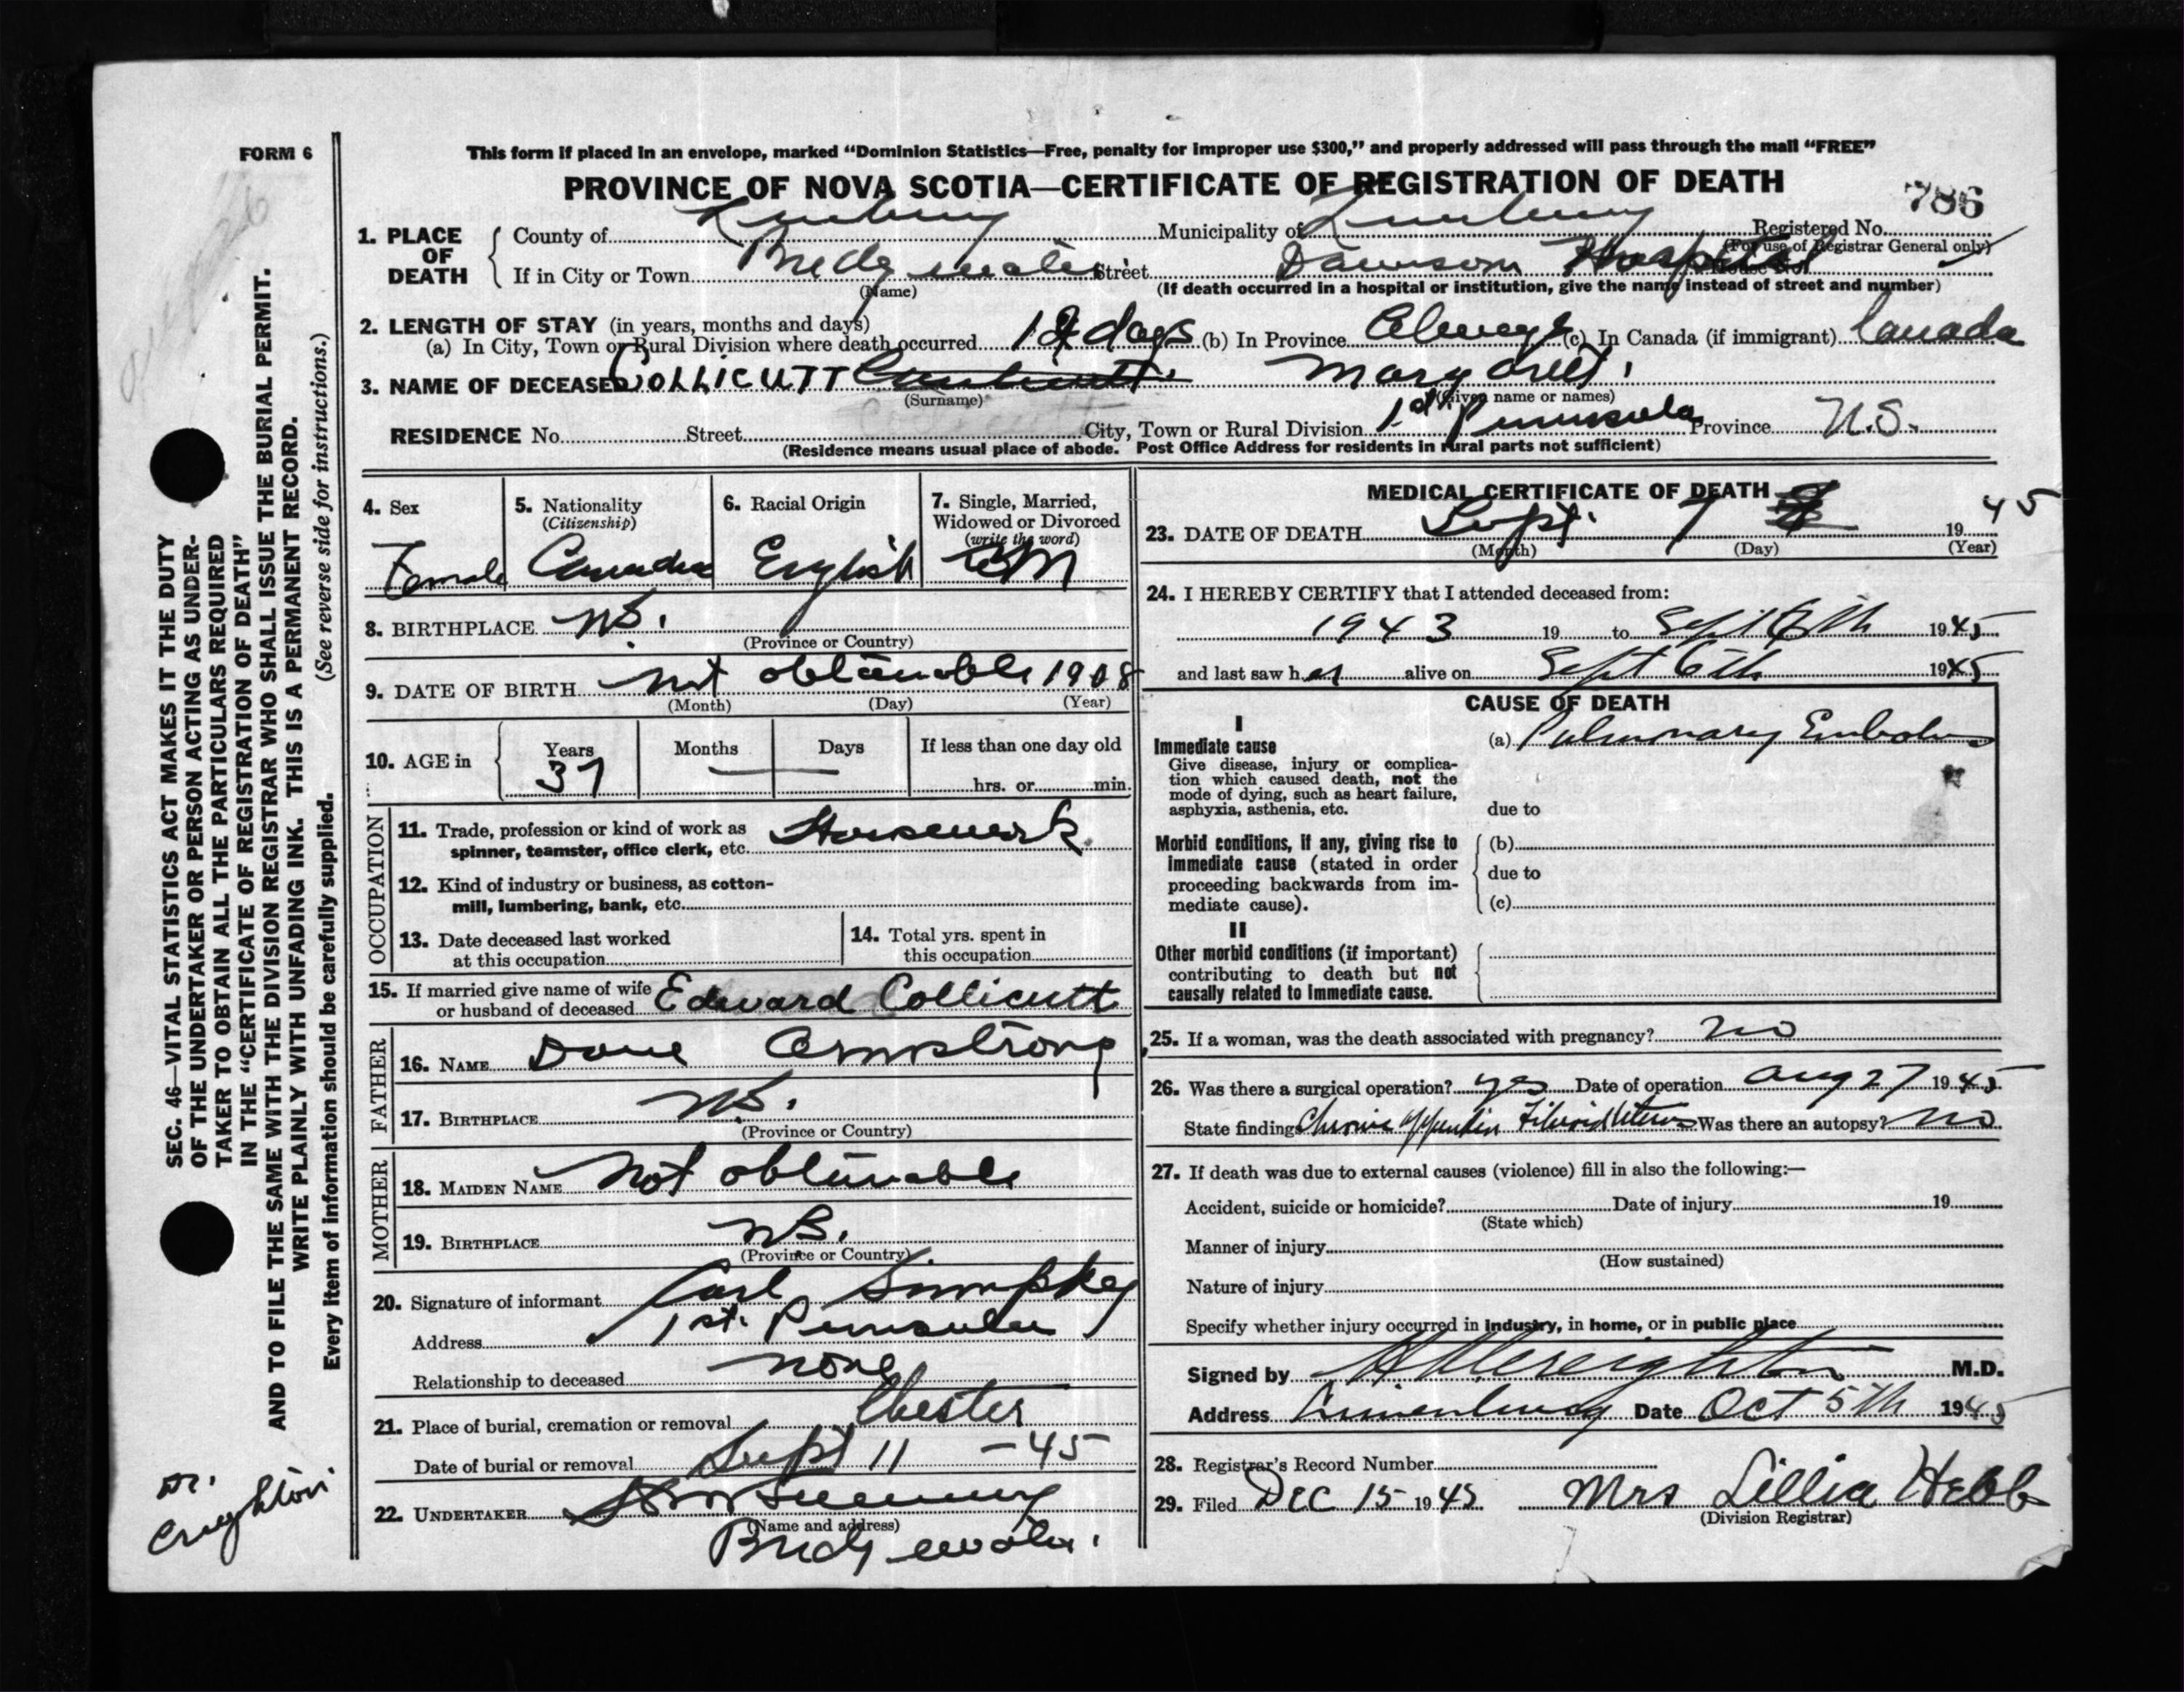 FORM 6
This form if placed in an envelope, marked “Dominion Statistics—Free, penalty for improper use $300,” and properly addressed will pass through the mail “FREE”
PROVINCE OF NOVA SCOTIA—CERTIFICATE OF REGISTRATION OF DEATH
786
1. PLACE OF DEATH
County of Lunenburg Municipality of Lunenburg Registered No.
(For use of Registrar General only)
If in City or Town Bridgewater Street Dawson Hospital House No.
(Name) (If death occurred in a hospital or institution, give the name instead of street and number)
2. LENGTH OF STAY (in years, months and days)
(a) In City, Town or Rural Division where death occurred days (b) In Province Always (c) In Canada (if immigrant) Canada
3. NAME OF DECEASED COLLICUTT Margaret
(Surname) (Given name or names)
RESIDENCE No. Street City, Town or Rural Division 1st Peninsula Province N.S.
(Residence means usual place of abode. Post Office Address for residents in rural parts not sufficient)
4. Sex
Female
5. Nationality
(Citizenship)
Canadian
6. Racial Origin
English
7. Single, Married,
Widowed or Divorced
(write the word)
M
8. BIRTHPLACE N.S.
(Province or Country)
9. DATE OF BIRTH Not obtainable 1908
(Month) (Day) (Year)
10. AGE in
Years
37
Months
Days
If less than one day old
hrs. or min.
OCCUPATION
11. Trade, profession or kind of work as
spinner, teamster, office clerk, etc. Housework
12. Kind of industry or business, as cotton-
mill, lumbering, bank, etc.
13. Date deceased last worked
at this occupation
14. Total yrs. spent in
this occupation
15. If married give name of wife
or husband of deceased Edward Collicutt
FATHER
16. NAME Dave Armstrong
17. BIRTHPLACE N.S.
(Province or Country)
MOTHER
18. MAIDEN NAME Not obtainable
19. BIRTHPLACE N.S.
(Province or Country)
20. Signature of informant Carl
Address 1st. Peninsula
Relationship to deceased none
21. Place of burial, cremation or removal Chester
Date of burial or removal Sept 11 - 45
22. UNDERTAKER
(Name and address)
Bridgewater.
MEDICAL CERTIFICATE OF DEATH
23. DATE OF DEATH Sept. 7 1945
(Month) (Day) (Year)
24. I HEREBY CERTIFY that I attended deceased from:
1943 19 to Sept 6th 1945
and last saw her alive on Sept 6th 1945
CAUSE OF DEATH
I
Immediate cause
Give disease, injury or complica-
tion which caused death, not the
mode of dying, such as heart failure,
asphyxia, asthenia, etc.
(a) Pulmonary Embolus
due to
Morbid conditions, if any, giving rise to
immediate cause (stated in order
proceeding backwards from im-
mediate cause).
(b)
due to
(c)
II
Other morbid conditions (if important)
contributing to death but not
causally related to immediate cause.
25. If a woman, was the death associated with pregnancy? no
26. Was there a surgical operation? yes Date of operation Aug 27 1945
State findings Chronic Fibroid Uterus Was there an autopsy? no
27. If death was due to external causes (violence) fill in also the following:—
Accident, suicide or homicide? Date of injury 19
(State which)
Manner of injury
(How sustained)
Nature of injury
Specify whether injury occurred in industry, in home, or in public place
Signed by Creighton M.D.
Address Lunenburg Date Oct 5th 1945
28. Registrar's Record Number
29. Filed Dec 15 1945 Mrs Lillia Hebb
(Division Registrar)
SEC. 46—VITAL STATISTICS ACT MAKES IT THE DUTY
OF THE UNDERTAKER OR PERSON ACTING AS UNDER-
TAKER TO OBTAIN ALL THE PARTICULARS REQUIRED
IN THE “CERTIFICATE OF REGISTRATION OF DEATH”
AND TO FILE THE SAME WITH THE DIVISION REGISTRAR WHO SHALL ISSUE THE BURIAL PERMIT.
WRITE PLAINLY WITH UNFADING INK. THIS IS A PERMANENT RECORD.
Every item of information should be carefully supplied. (See reverse side for instructions.)
Dr.
Creighton